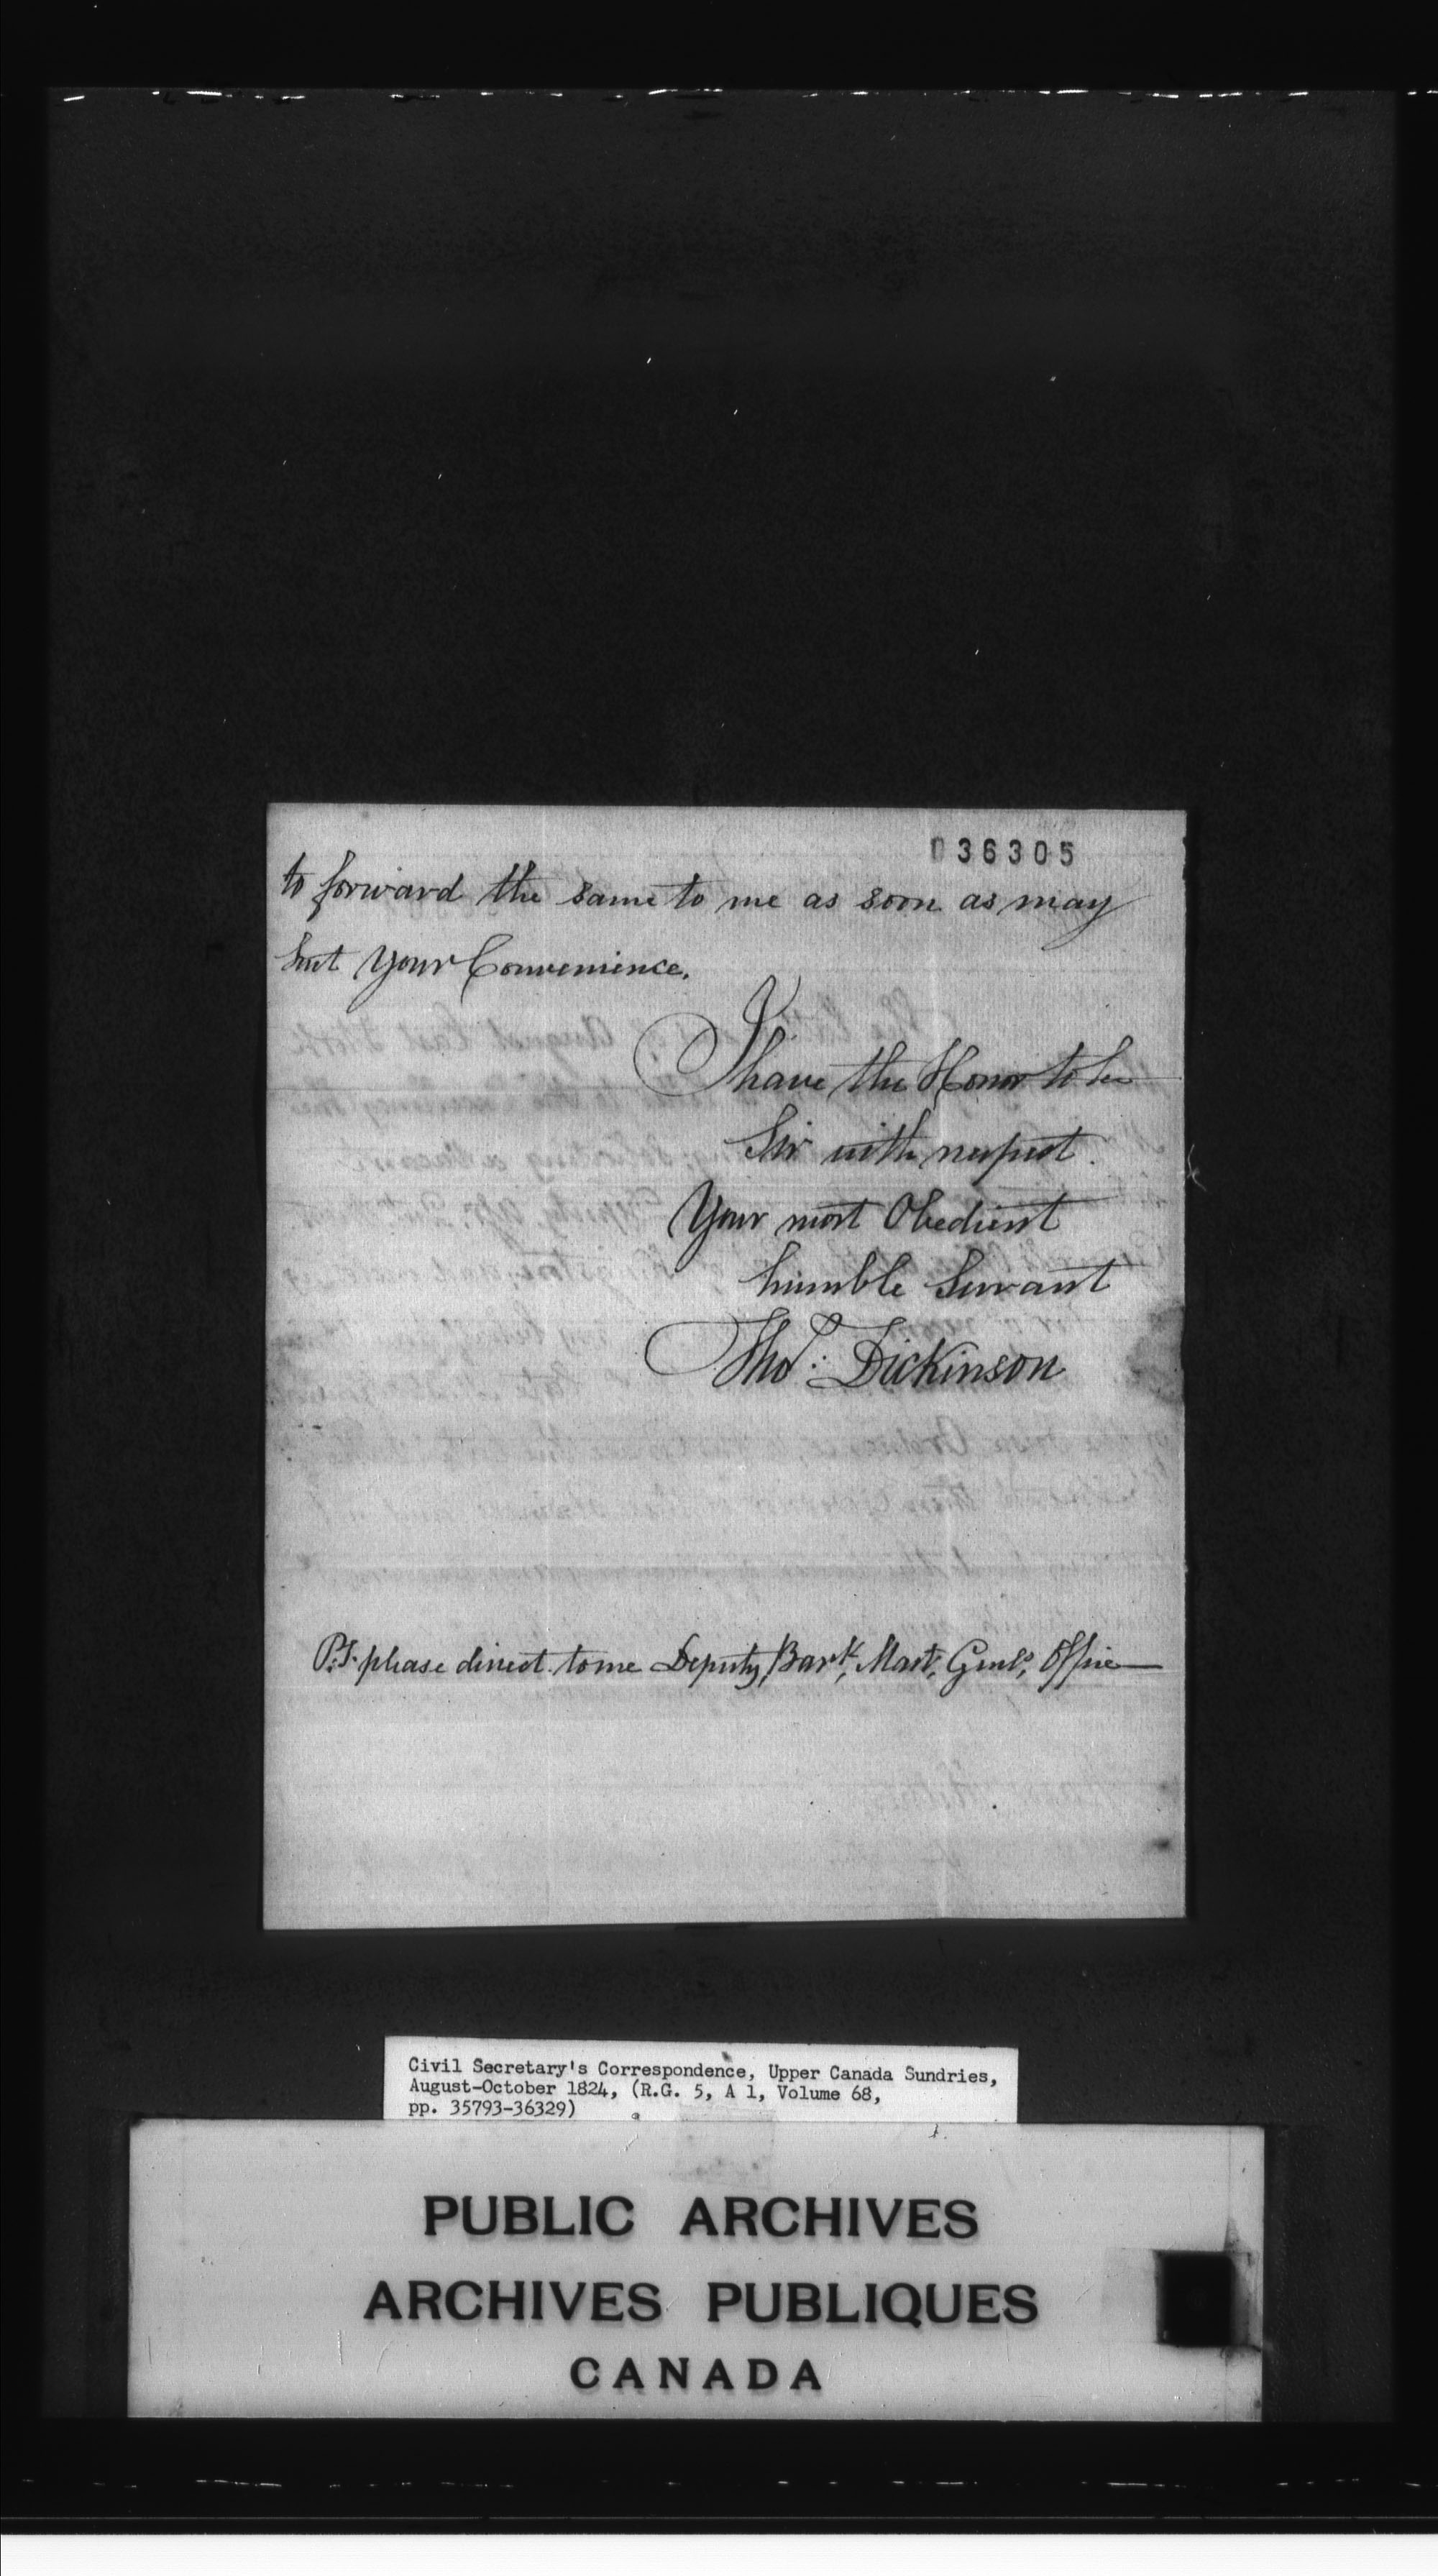 036305
to forward the same to me as soon as may
suit your Convenience.
I have the Honor to be
Sir with respect.
Your most Obedient
humble Servant
Thos. Dickinson
P.S. please direct to me Deputy Bark, Mastr, Genls, Office
Civil Secretary's Correspondence, Upper Canada Sundries,
August-October 1824, (R.G. 5, A 1, Volume 68,
pp. 35793-36329)
PUBLIC ARCHIVES
ARCHIVES PUBLIQUES
CANADA